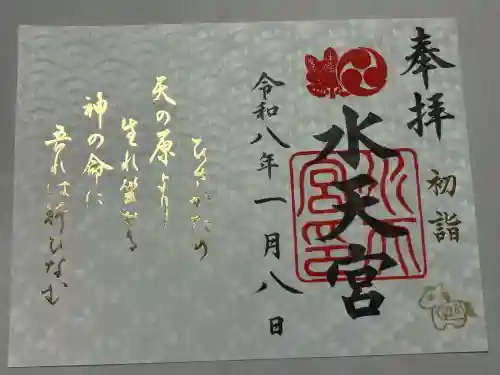 奉拝
初詣
水天宮
水天宮印
令和八年一月八日
ひさかたの
天の原より
生れ
神の命に
吾れは祈ひなむ